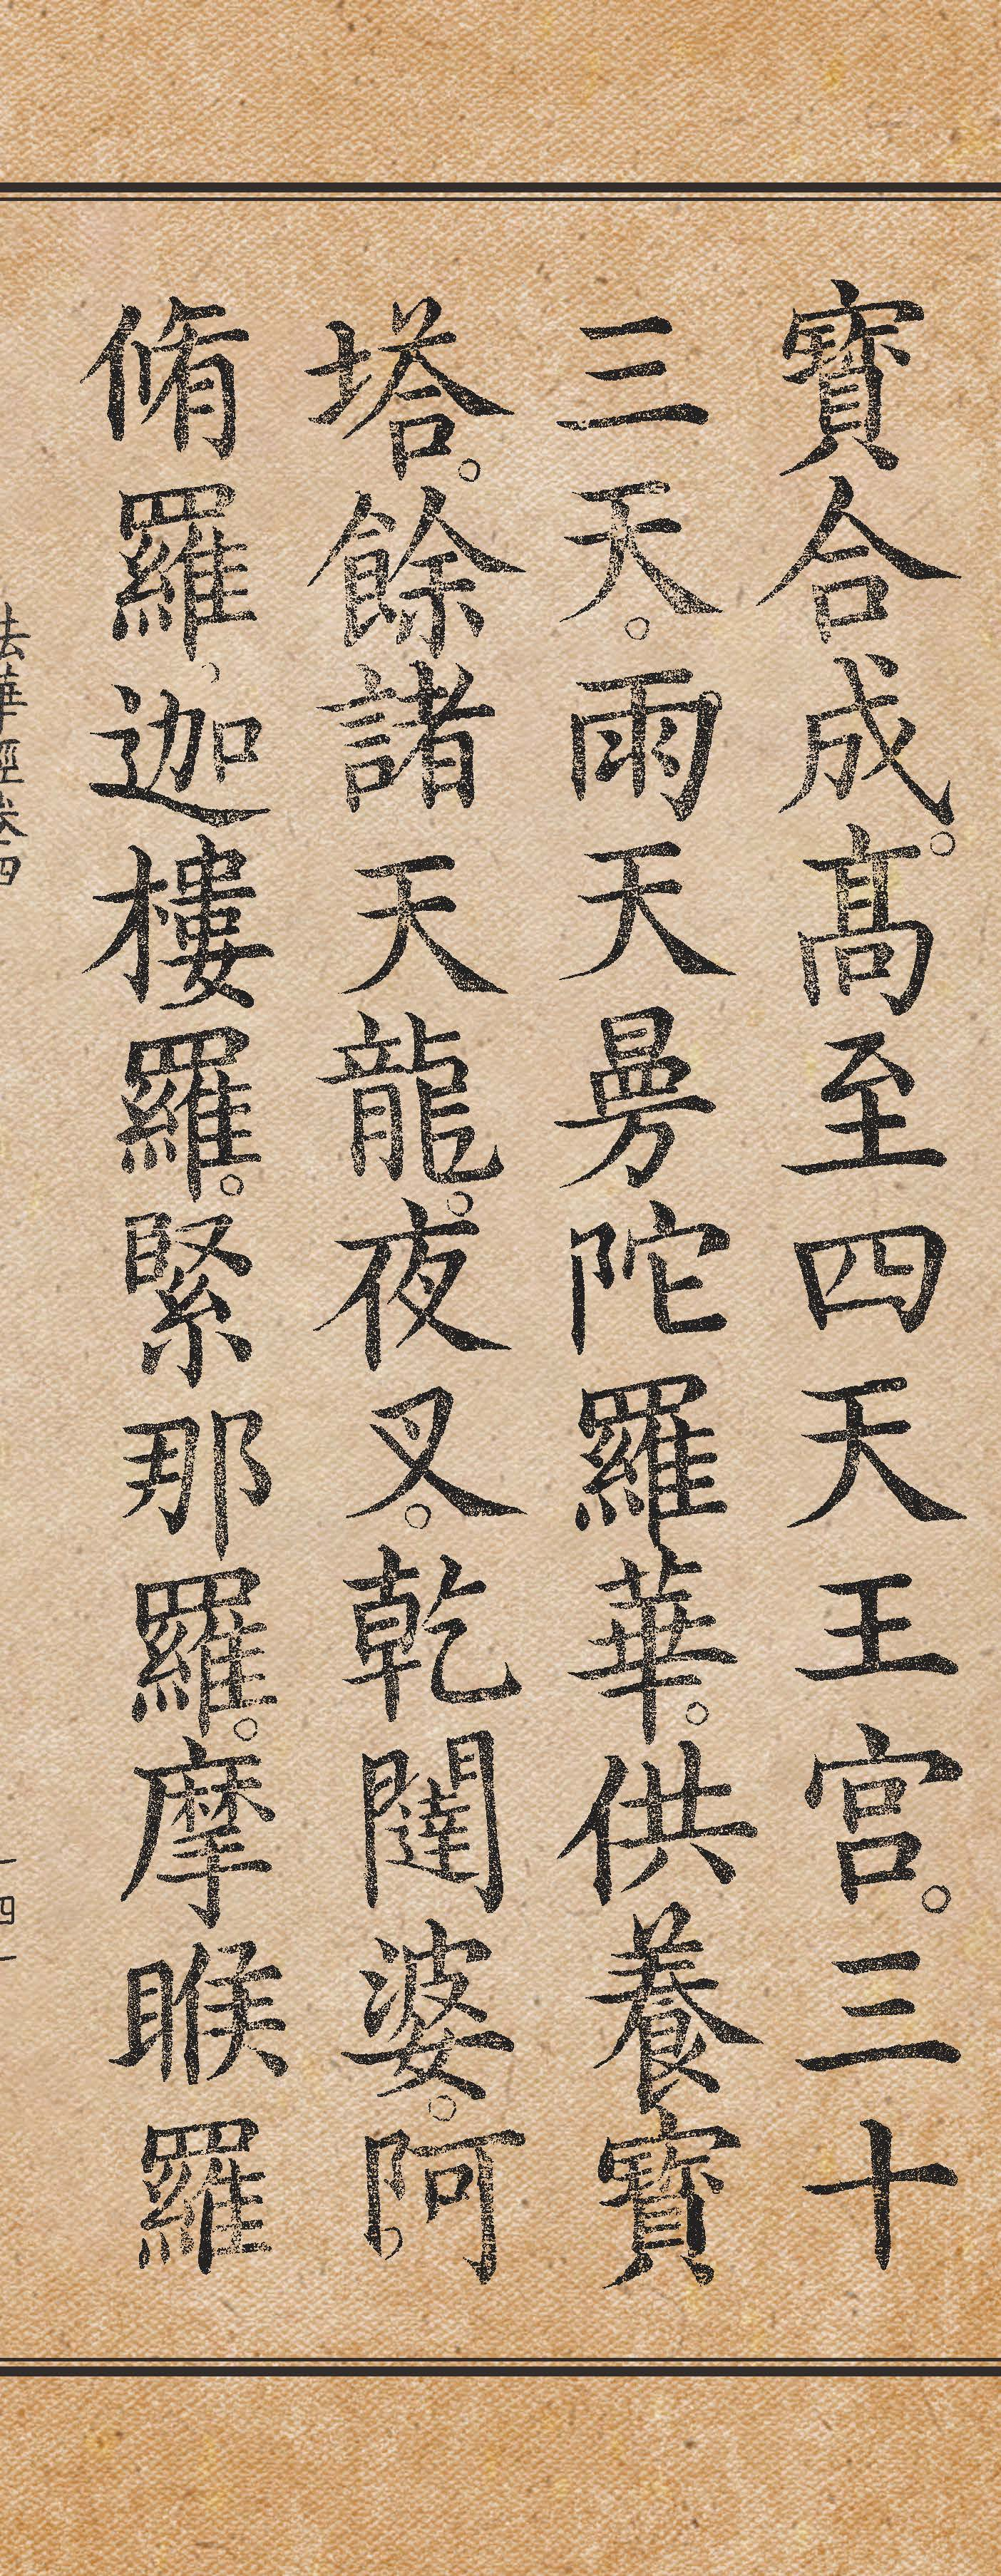 寶合成。髙至四天王宮。三十
三天。雨天曼陀羅華。供養寶
塔。餘諸天龍。夜叉。乾闥婆。阿
脩羅。迦樓羅。緊那羅。摩睺羅
法華經卷四
一四一